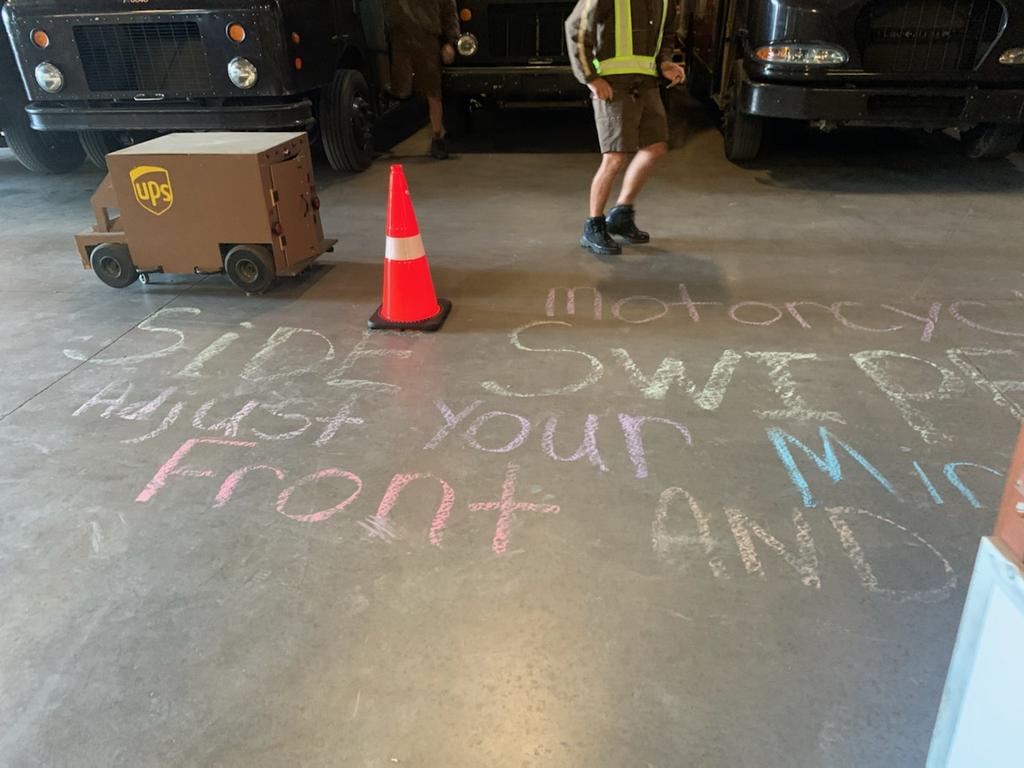 ups
motorcyc
SiDE SWIPE
ADjUST Your Mir
Front AND